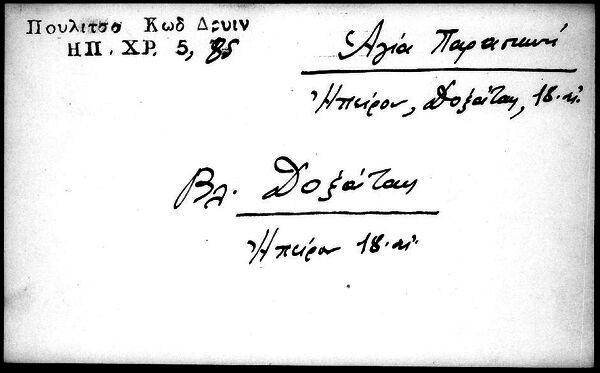 Πουλιτσα Κωδ Δρυιν
ΗΠ. ΧΡ. 5, 85
Ἁγία Παρασκευή
Ἠπείρου, Δοξάτας, 18. αἰ.
Βλ. Δοξάτας
Ἠπείρου 18. αἰ.